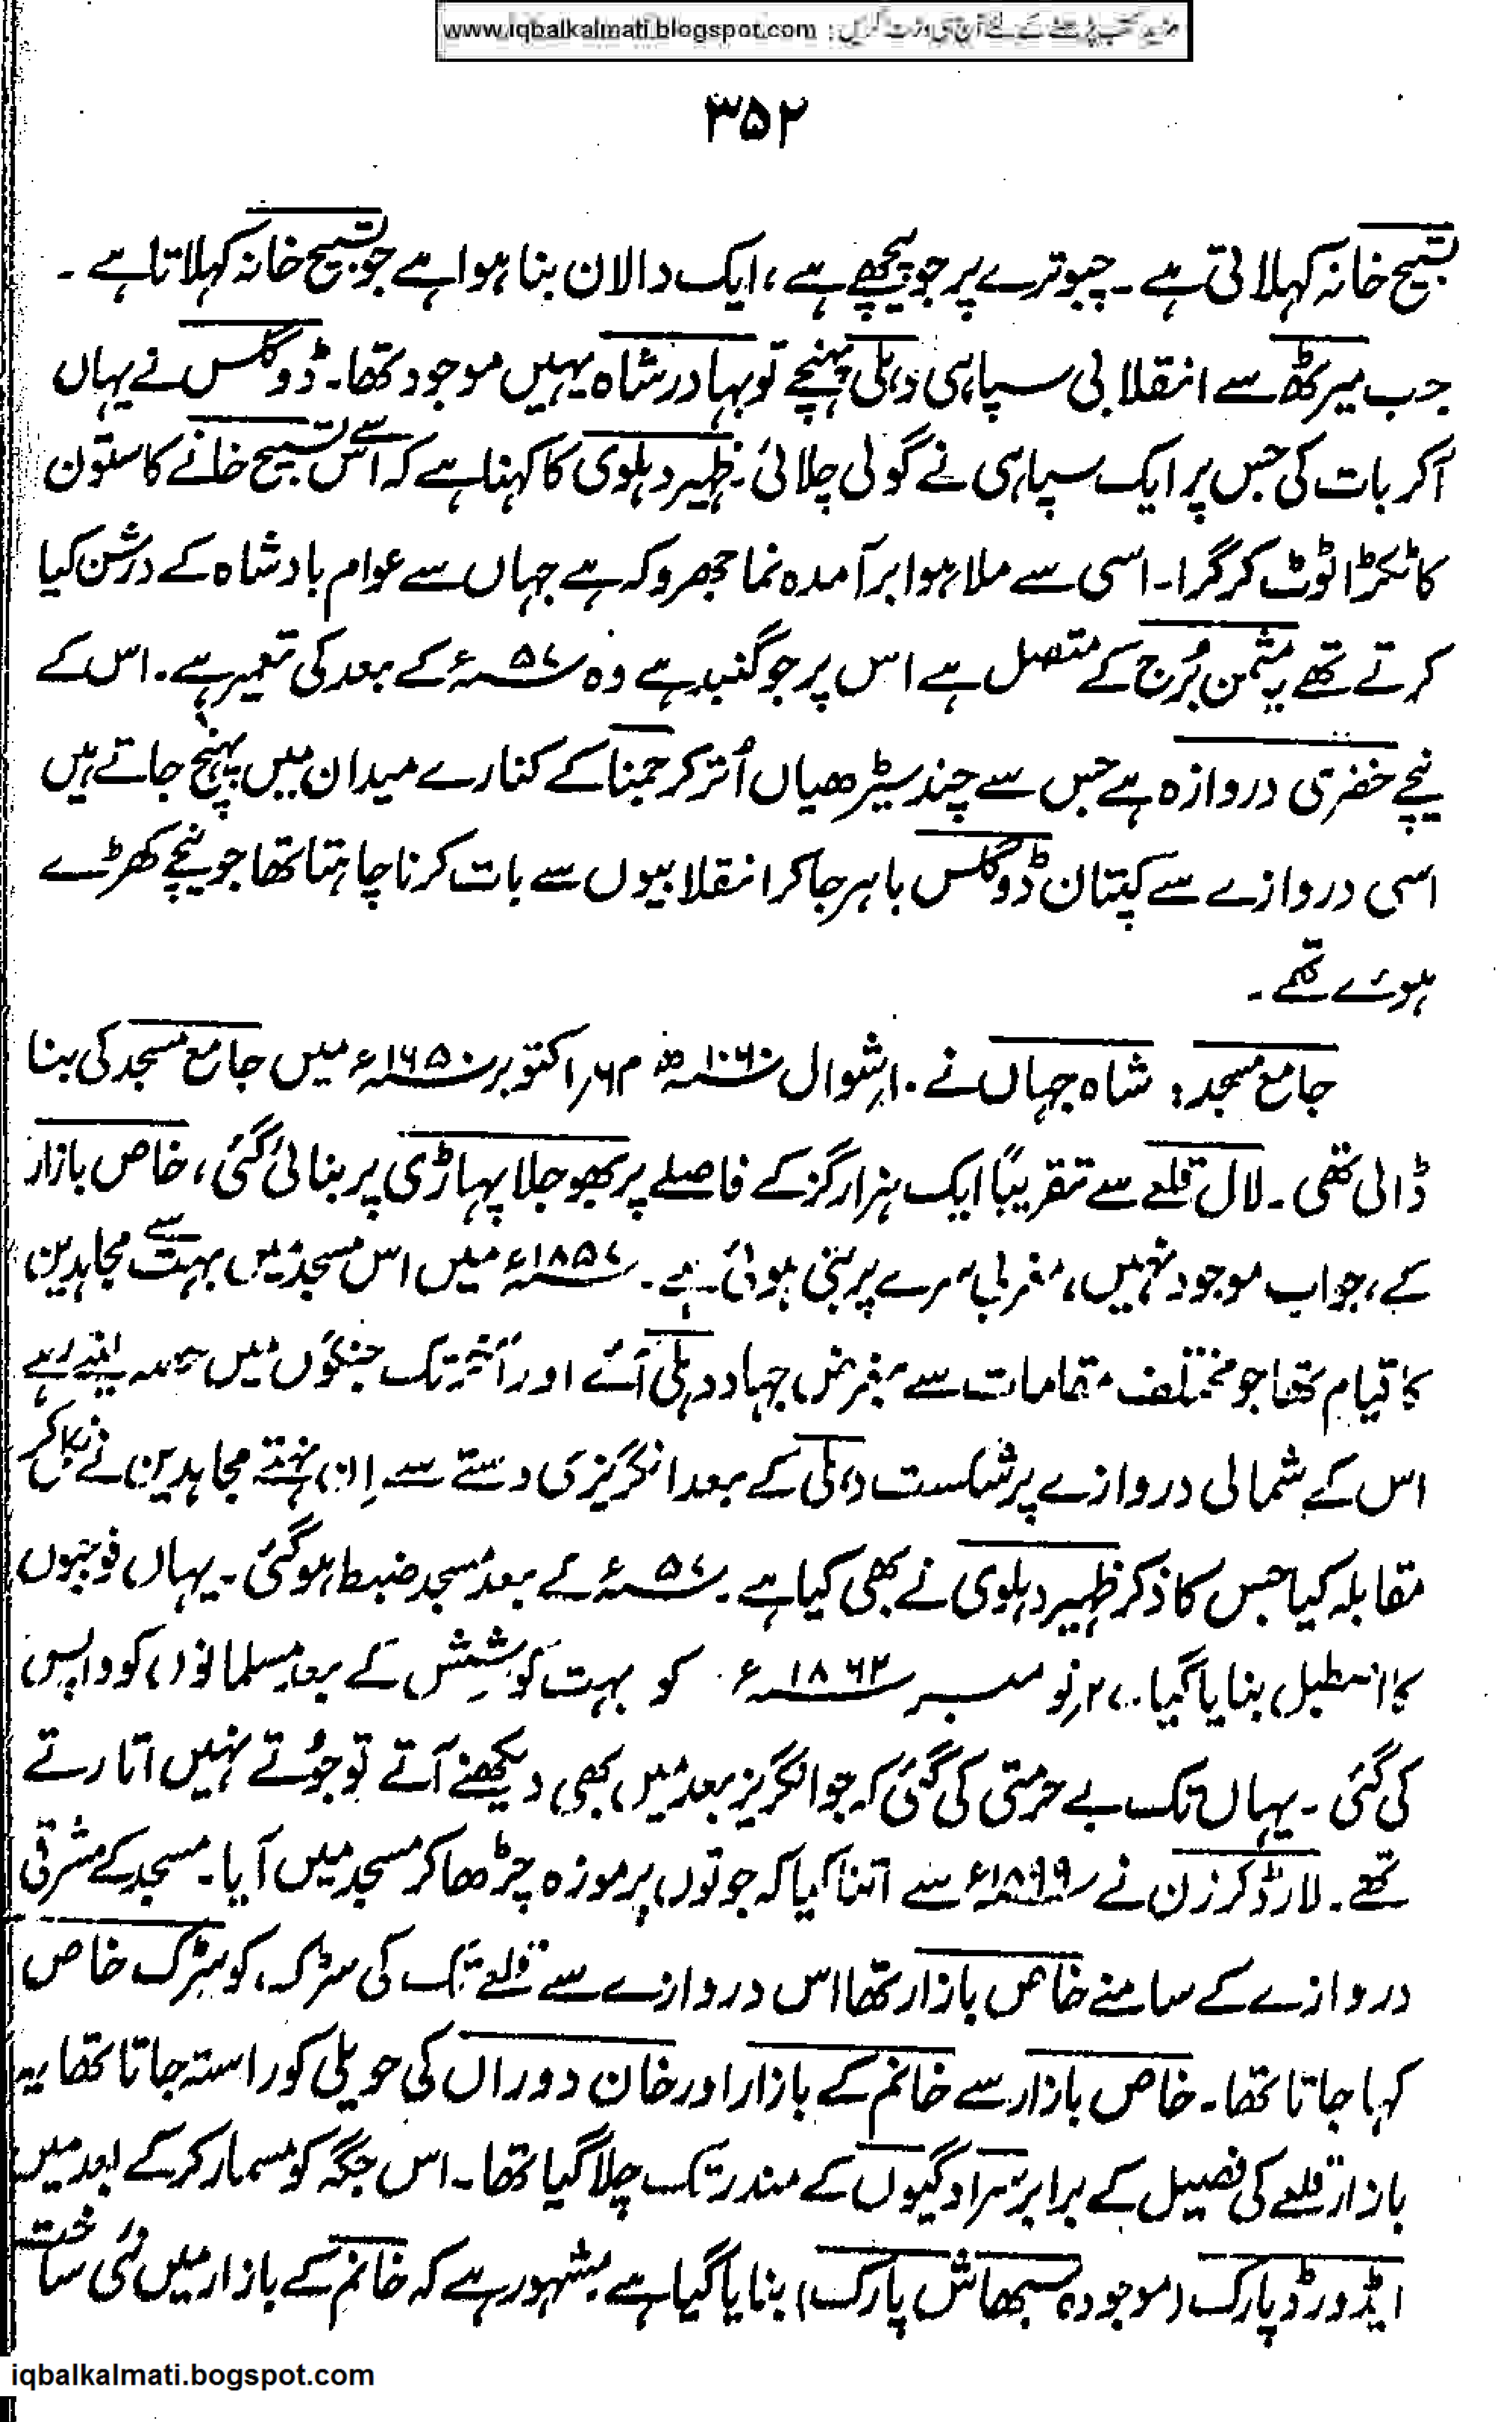 www.iqbalkalmati.blogspot.com : مزید کتب پڑھنے کے لئے آج ہی وزٹ کریں
۳۵۲
تسبیح خانہ کہلاتی ہے۔ چبوترے پر جو پیچھے ہے، ایک دالان بنا ہوا ہے جو تسبیح خانہ کہلاتا ہے۔
جب میرٹھ سے انقلابی سپاہی دہلی پہنچے تو بہادر شاہ یہیں موجود تھا۔ ڈوگلس نے یہاں
آکر بات کی جس پر ایک سپاہی نے گولی چلائی۔ ظہیر دہلوی کا کہنا ہے کہ اس سے تسبیح خانے کا ستون
کا ٹکڑا ٹوٹ کر گرا۔ اسی سے ملا ہوا برآمدہ نما جھروکہ ہے جہاں سے عوام بادشاہ کے درشن کیا
کرتے تھے یہ مثمن بُرج کے متصل ہے اس پر جو گنبد ہے وہ ۵۷ء کے بعد کی تعمیر ہے۔ اس کے
نیچے خضری دروازہ ہے جس سے چند سیڑھیاں اُتر کر جمنا کے کنارے میدان میں پہنچ جاتے ہیں
اسی دروازے سے کپتان ڈوگلس باہر جا کر انقلابیوں سے بات کرنا چاہتا تھا جو نیچے کھڑے
ہوئے تھے۔
جامع مسجد: شاہ جہاں نے ۱۰؍شوال ۱۰۶۰ھ م ۶؍اکتوبر ۱۶۵۰ء میں جامع مسجد کی بنا
ڈالی تھی۔ لال قلعے سے تقریباً ایک ہزار گز کے فاصلے پر بھوجلا پہاڑی پر بنائی گئی، خاص بازار
کے، جو اب موجود نہیں، مغربی سرے پر بنی ہوئی ہے۔ ۱۸۵۷ء میں اس مسجد میں بہت سے مجاہدین
کا قیام تھا جو مختلف مقامات سے بغرض جہاد دہلی آئے اور آخر تک جنگوں میں حصہ لیتے رہے
اس کے شمالی دروازے پر شکست دہلی کے بعد انگریزی دستے سے اِن نہتے مجاہدین نے نکل کر
مقابلہ کیا جس کا ذکر ظہیر دہلوی نے بھی کیا ہے۔ ۵۷ء کے بعد مسجد ضبط ہو گئی۔ یہاں فوجیوں
کا اسطبل بنایا گیا۔ ۲۷؍نومبر ۱۸۶۲ء کو بہت کوشش کے بعد مسلمانوں کو واپس
کی گئی۔ یہاں تک بے حرمتی کی گئی کہ جو انگریز بعد میں بھی دیکھنے آتے تو جوُتے نہیں اتارتے
تھے۔ لارڈ کرزن نے ۱۸۹۹ء سے اتنا کیا کہ جوتوں پر موزہ چڑھا کر مسجد میں آیا۔ مسجد کے مشرقی
دروازے کے سامنے خاص بازار تھا اس دروازے سے قلعے تک کی سڑک کو سڑک خاص
کہا جاتا تھا۔ خاص بازار سے خانم کے بازار اور خان دوراں کی حویلی کو راستہ جاتا تھا یہ
بازار قلعے کی فصیل کے برابر سراوگیوں کے مندر تک چلا گیا تھا۔ اس جگہ کو مسمار کر کے بعد میں
ایڈورڈ پارک (موجودہ سبھاش پارک) بنایا گیا ہے۔ مشہور ہے کہ خانم کے بازار میں نئی ساخت
iqbalkalmati.bogspot.com